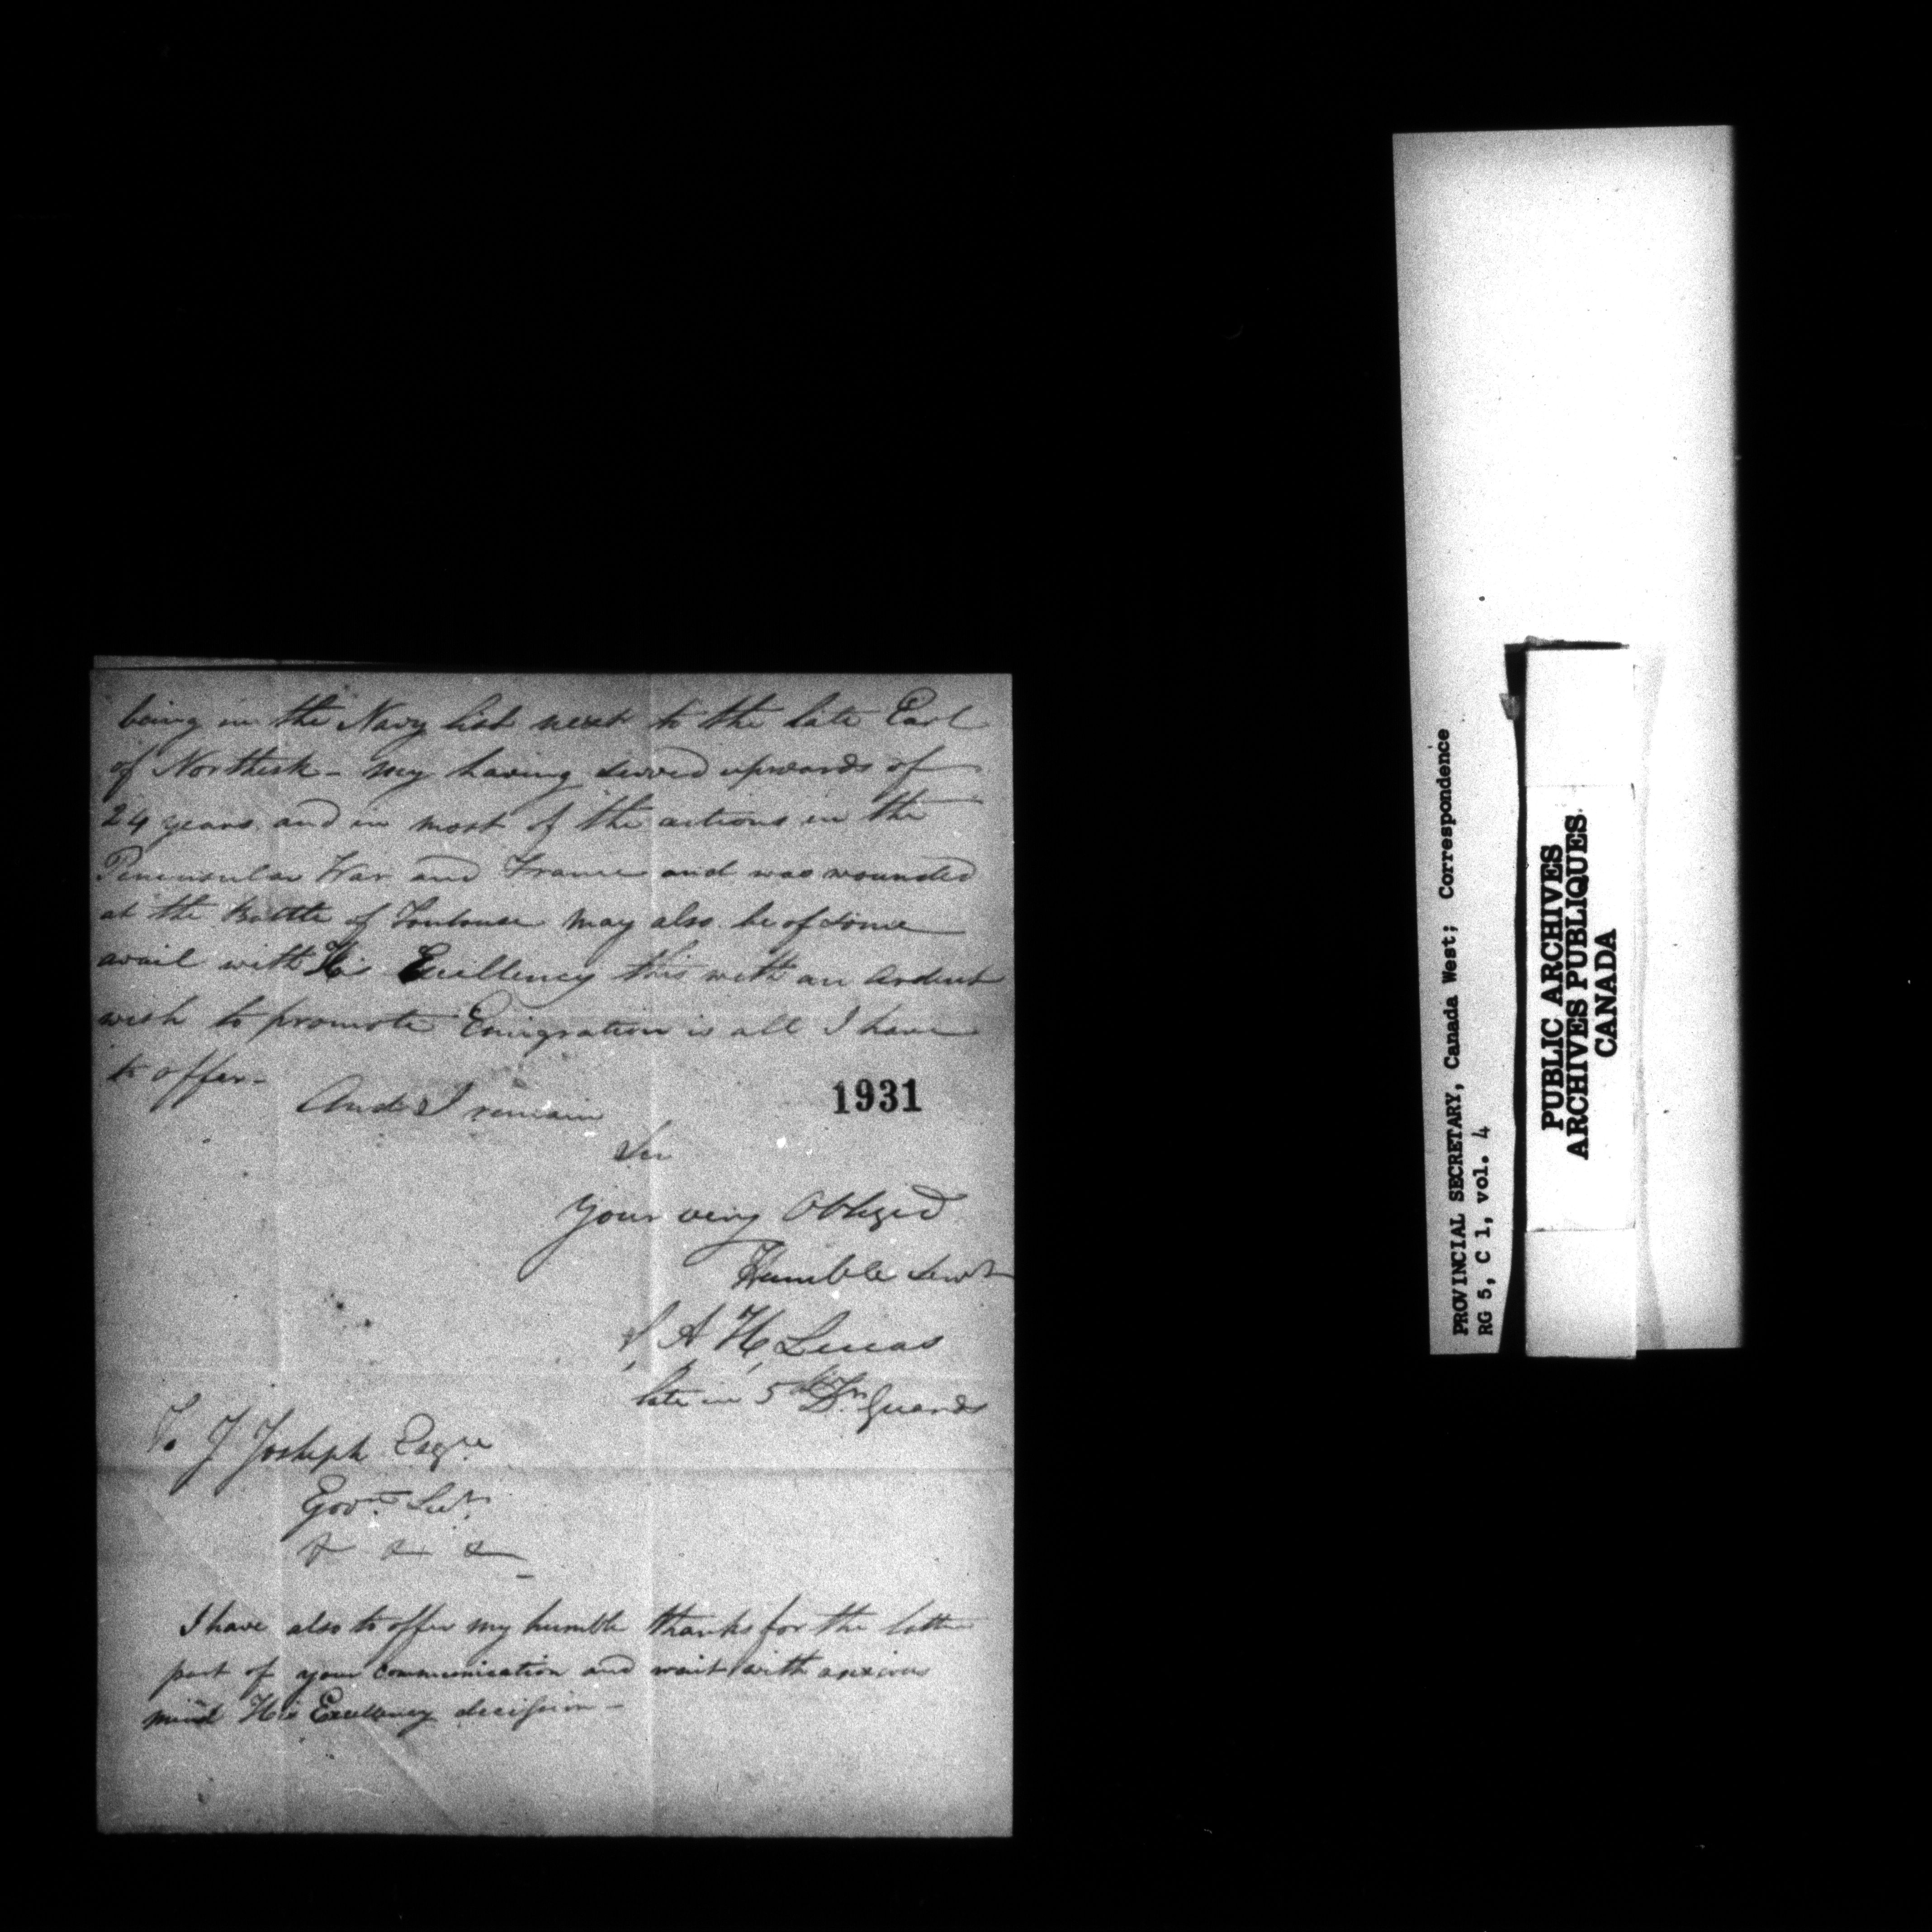 being in the Navy list next to the late Earl
of Northesk - my having served upwards of
24 years, and in most of the actions in the
Peninsular War and France and was wounded
at the Battle of Toulouse may also be of some
avail with His Excellency this with an ardent
wish to promote Emigration is all I have
to offer -
And I remain
1931
Sir
Your very Obliged
Humble Servt
A H Lucas
late in 5th Dn. Guards
To J Joseph Esqre
Govt. Secy.
& & &
I have also to offer my humble thanks for the latter
part of your communication and wait with anxious
mind His Excellency decission -
PROVINCIAL SECRETARY, Canada West; Correspondence
RG 5, C 1, vol. 4
PUBLIC ARCHIVES
ARCHIVES PUBLIQUES
CANADA